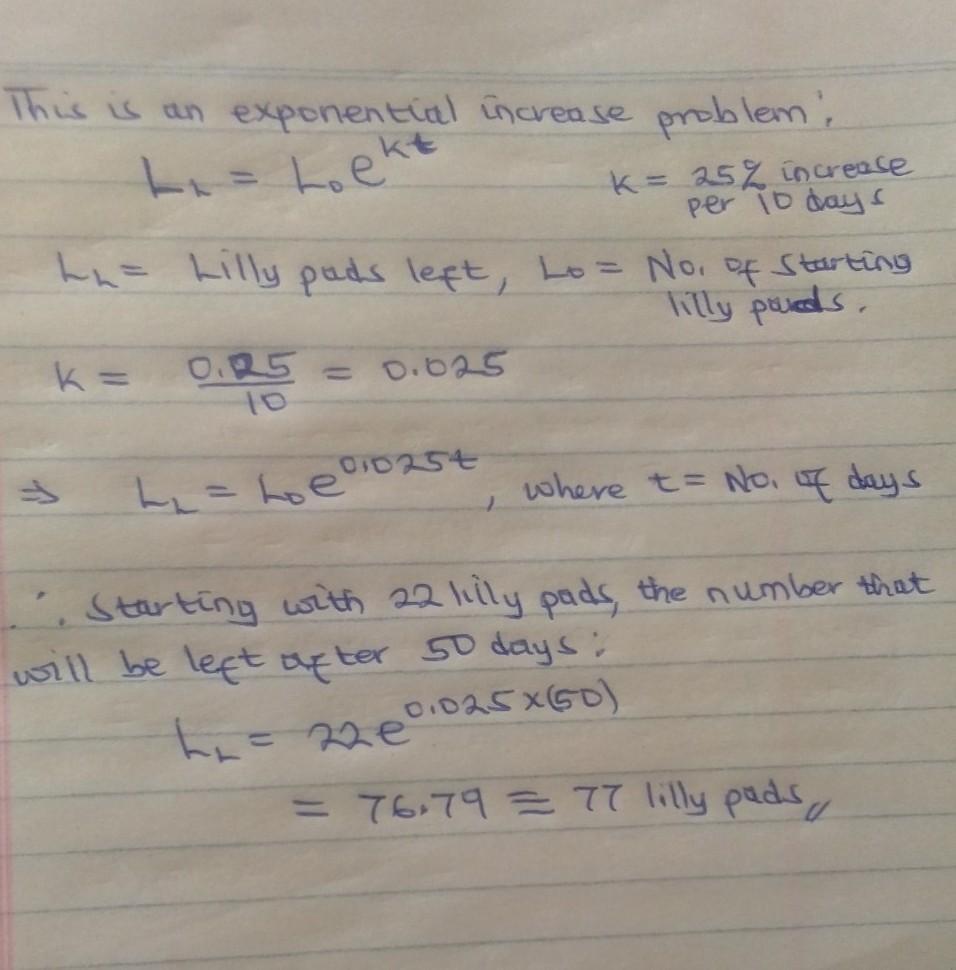 This is an exponential increase problem;
L_L = L₀e^kt
K = 25% increase
per 10 days
L_L = Lilly pads left, L₀ = No. of starting
lilly pads.
K = 0.25/10 = 0.025
⇒ L_L = L₀e^0.025t, where t = No. of days
∴ Starting with 22 lilly pads, the number that
will be left after 50 days:
L_L = 22e^0.025×(50)
= 76.79 ≡ 77 lilly pads//